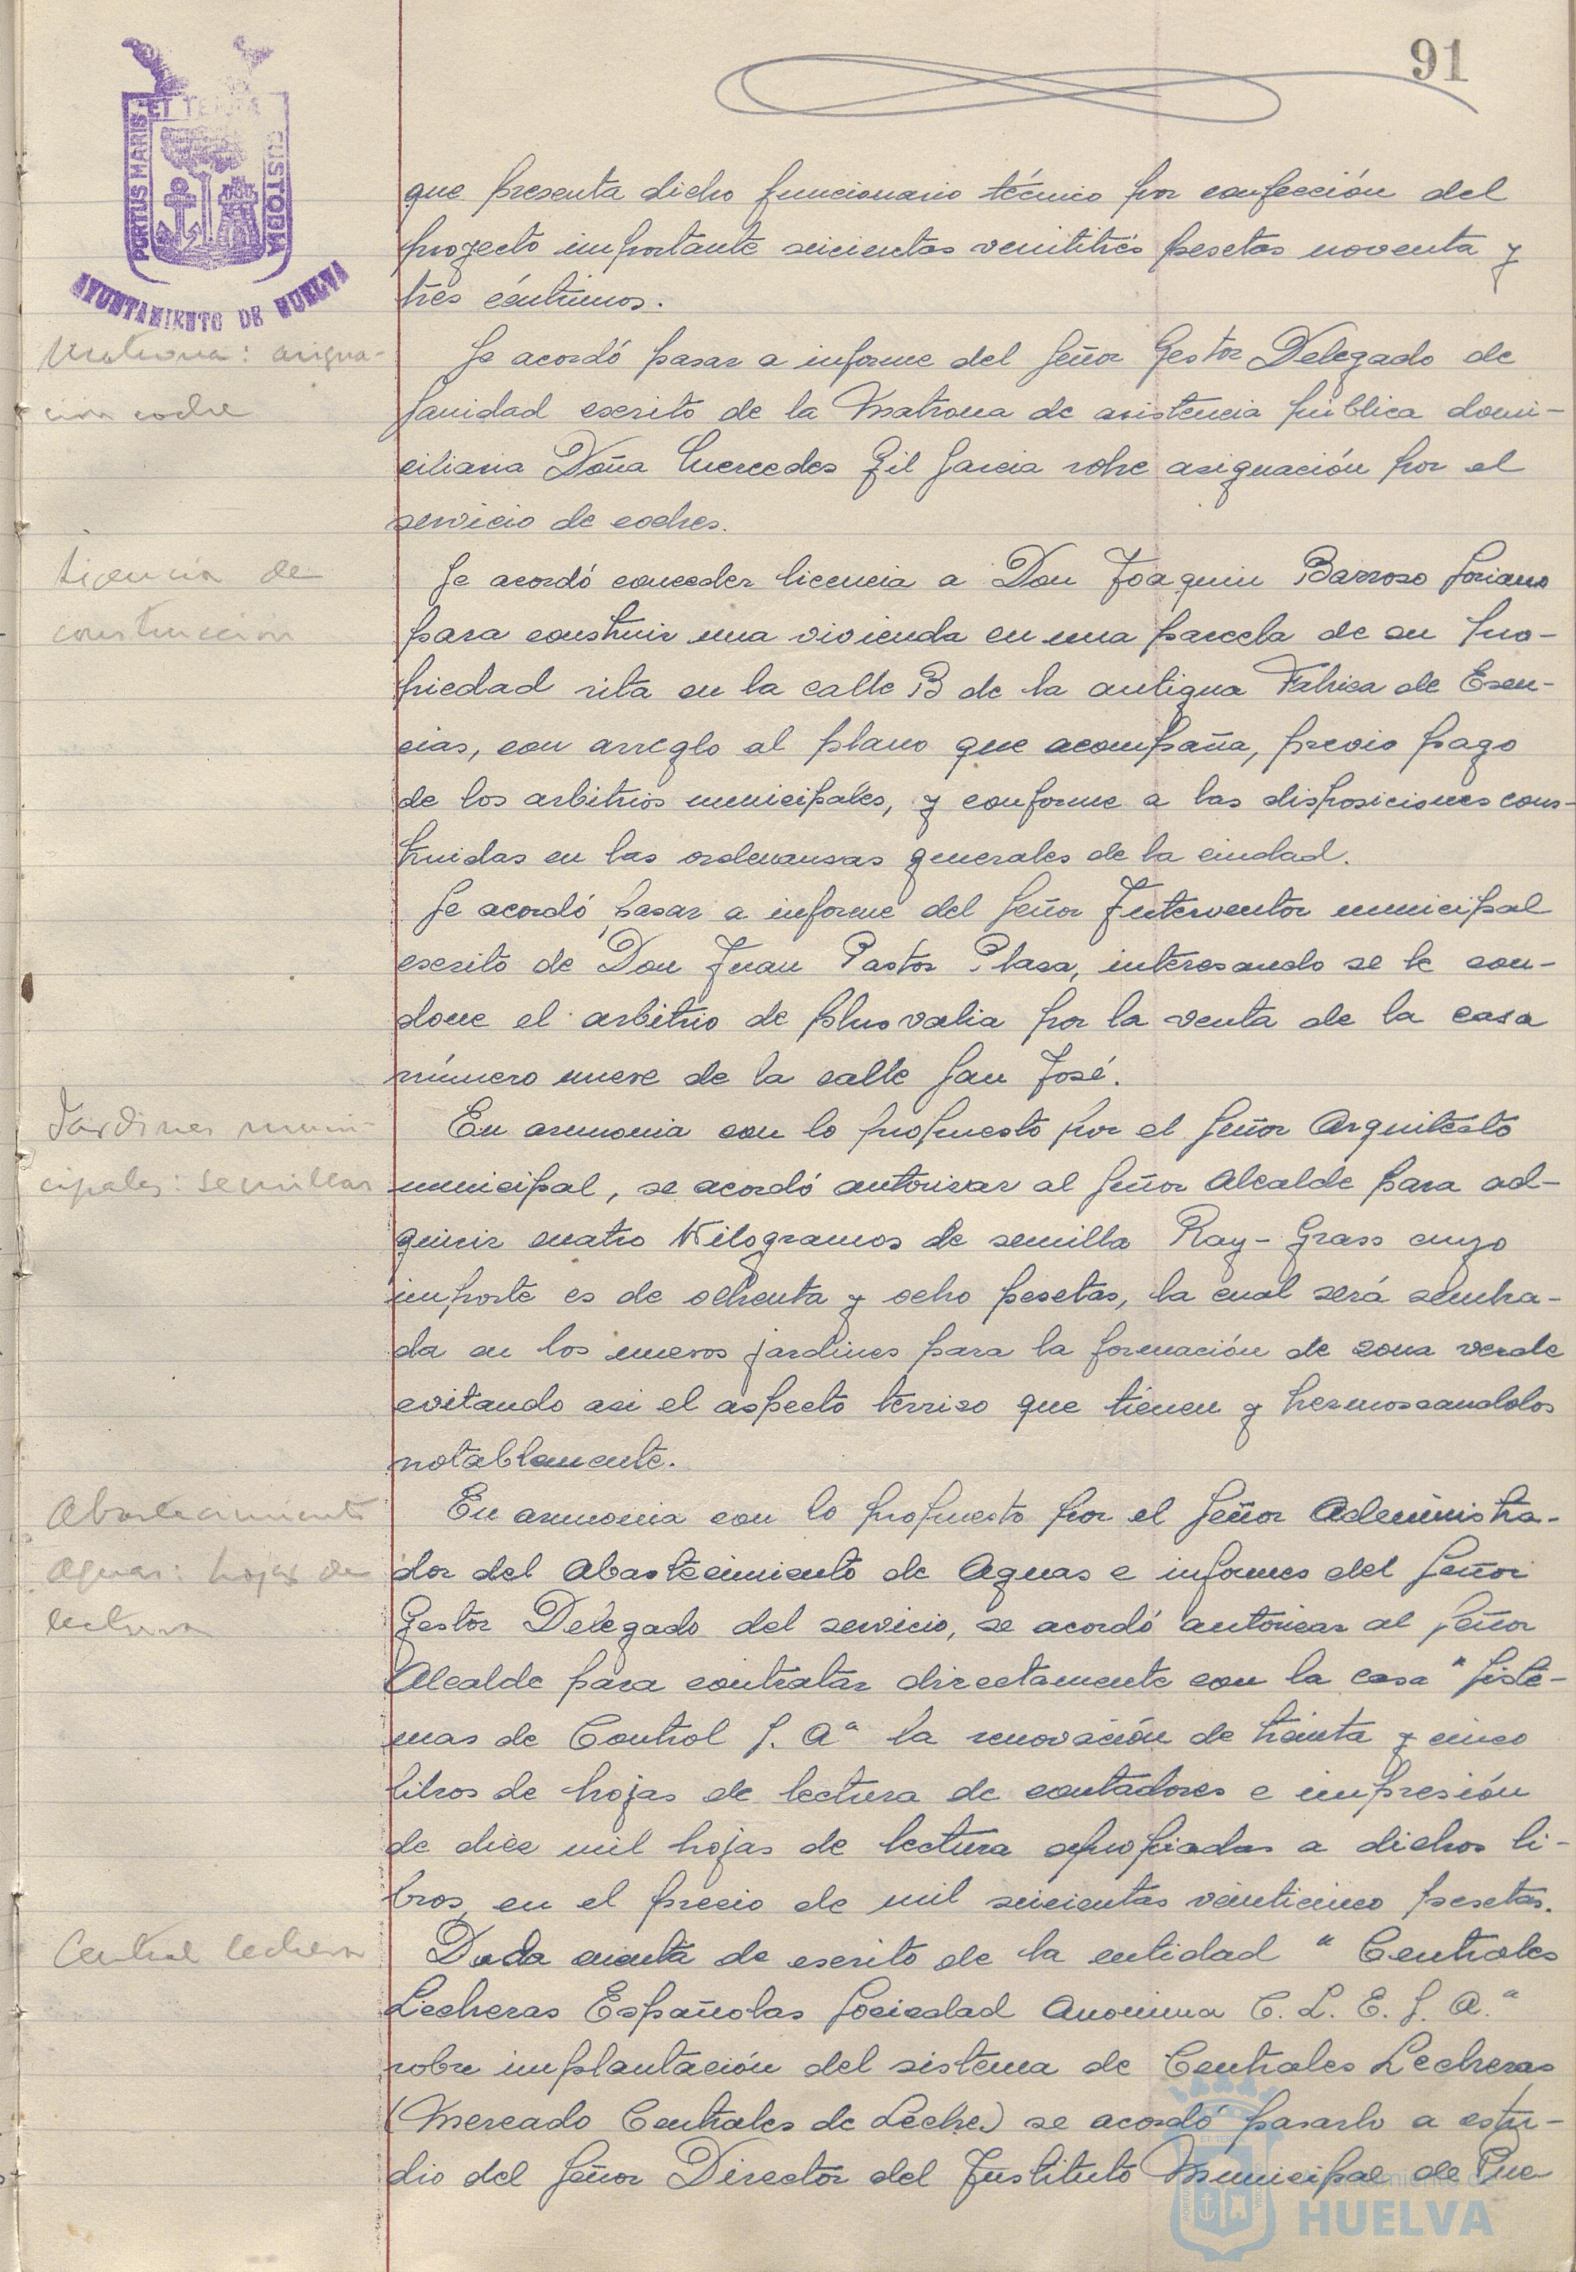 91
PORTUS MARIS ET TERRA CUSTODIA
AYUNTAMIENTO DE HUELVA
que presenta dicho funcionario técnico por confección del
proyecto importante seicientas veintitrés pesetas noventa y
tres céntimos.
Matrona: asigna-
ción coche
Se acordó pasar a informe del Señor Gestor Delegado de
Sanidad escrito de la Matrona de asistencia pública domi-
ciliaria Doña Mercedes Gil Garcia sobre asignación por el
servicio de coches.
Licencia de
construcción
Se acordó conceder licencia a Don Joaquin Barroso Soriano
para construir una vivienda en una parcela de su pro-
piedad sita en la calle B de la antigua Fabrica de Esen-
cias, con arreglo al plano que acompaña, previo pago
de los arbitrios municipales, y conforme a las disposiciones cons-
truidas en las ordenansas generales de la ciudad.
Se acordó pasar a informe del Señor Interventor municipal
escrito de Don Juan Pastor Plasa, interesando se le con-
done el arbitrio de plusvalia por la venta de la casa
número nueve de la calle San José.
Jardines muni-
cipales: semillas
En armonia con lo propuesto por el Señor Arquitecto
municipal, se acordó autorizar al Señor Alcalde para ad-
quirir cuatro Kilogramos de semilla Ray-Grass cuyo
importe es de ochenta y ocho pesetas, la cual será sembra-
da en los nuevos jardines para la formación de zona verde
evitando asi el aspecto terrizo que tienen y hermoseandolos
notablemente.
Abastecimiento
Aguas: hojas de
lectura
En armonia con lo propuesto por el Señor Administra-
dor del Abastecimiento de Aguas e informes del Señor
Gestor Delegado del servicio, se acordó autorizar al Señor
Alcalde para contratar directamente con la casa "Siste-
mas de Control S. A" la renovación de treinta y cinco
libros de hojas de lectura de contadores e impresión
de diez mil hojas de lectura apropiadas a dichos li-
bros, en el precio de mil seicientas veinticinco pesetas.
Central lechera
Dada cuenta de escrito de la entidad "Centrales
Lecheras Españolas Sociedad Anonima C. L. E. S. A."
sobre implantación del sistema de Centrales Lecheras
(Mercado Centrales de Leche) se acordó pasarlo a estu-
dio del Señor Director del Instituto Municipal de Pue-
Ayuntamiento de
HUELVA